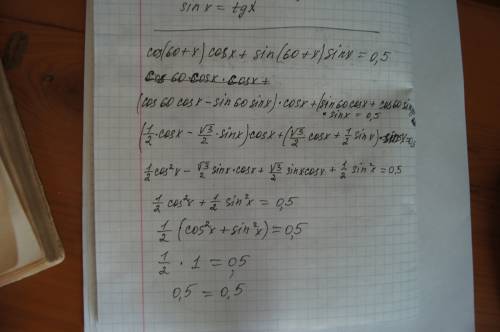 sin x = tg x
cos(60+x) cosx + sin(60+x) sinx = 0,5
cos 60 cosx · cosx +
(cos 60 cosx - sin 60 sinx) · cosx + (sin 60 cosx + cos 60 sinx)
· sinx = 0,5
(1/2 · cosx - √3/2 · sinx) cosx + (√3/2 cosx + 1/2 sinx) · sinx =
1/2 cos²x - √3/2 sinx · cosx + √3/2 sinx cosx + 1/2 sin²x = 0,5
1/2 cos²x + 1/2 sin²x = 0,5
1/2 (cos²x + sin²x) = 0,5
1/2 · 1 = 0,5
0,5 = 0,5